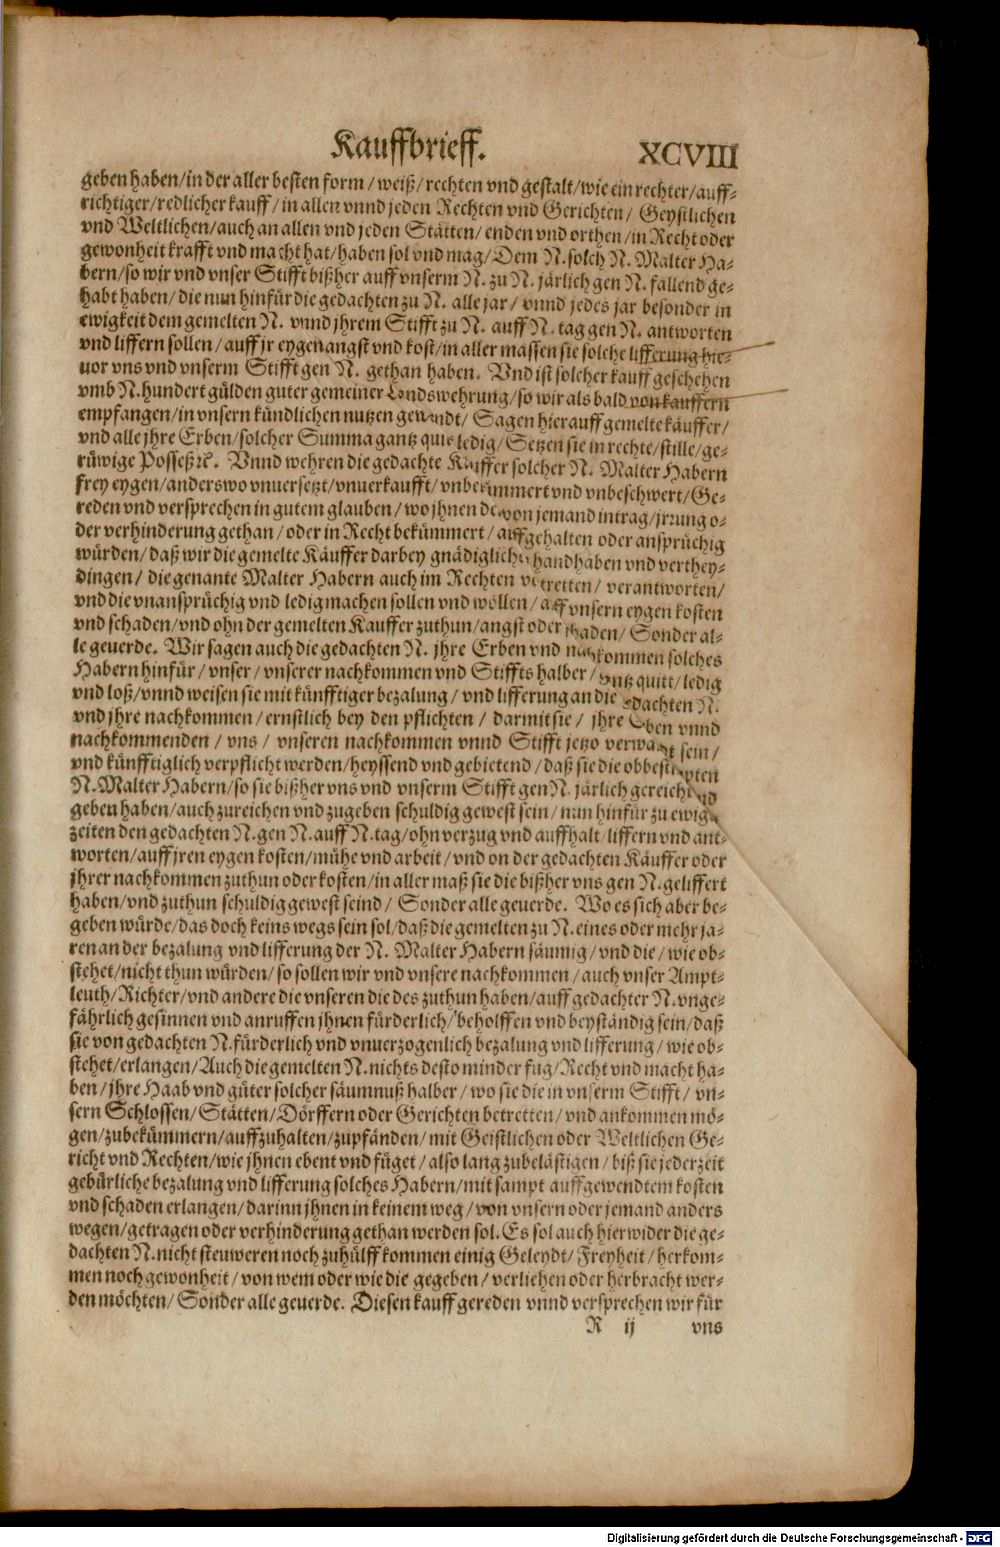 Kauffbrieff. XCVIII
geben haben/in der aller besten form/weiß/rechten vnd gestalt/wie ein rechter/auff-
richtiger/redlicher kauff/in allen vnnd jeden Rechten vnd Gerichten/ Geystlichen
vnd Weltlichen/auch an allen vnd jeden Stätten/enden vnd orthen/in Recht oder
gewonheit krafft vnd macht hat/haben sol vnd mag/Dem N. solch N. Malter Ha-
bern/so wir vnd vnser Stifft bißher auff vnserm N. zu N. järlich gen N. fallend ge-
habt haben/die nun hinfür die gedachten zu N. alle jar/ vnnd jedes jar besonder in
ewigkeit dem gemelten N. vnnd jhrem Stifft zu N. auff N. tag gen N. antworten
vnd liffern sollen/auff jr eygen angst vnd kost/in aller massen sie solche lifferung hie-
uor vns vnd vnserm Stifft gen N. gethan haben. Vnd ist solcher kauff geschehen
vmb N. hundert gülden guter gemeiner Landswehrung/so wir als bald von kauffern
empfangen/in vnsern kündlichen nutzen gewandt/ Sagen hierauff gemelte käuffer/
vnd alle jhre Erben/solcher Summa gantz quit ledig/Setzen sie in rechte/stille/ge-
rüwige Posseß ꝛc. Vnnd wehren die gedachte Käuffer solcher N. Malter Habern
frey eygen/anderswo vnuersetzt/vnuerkaufft/vnbekümmert vnd vnbeschwert/Ge-
reden vnd versprechen in gutem glauben/wo jhnen dauon jemand intrag/jrrung o-
der verhinderung gethan/oder in Recht bekümmert/auffgehalten oder ansprüchig
würden/daß wir die gemelte Käuffer darbey gnädiglich handhaben vnd verthey-
dingen/die genante Malter Habern auch im Rechten vertretten/verantworten/
vnd die vnansprüchig vnd ledig machen sollen vnd wöllen/auff vnsern eygen kosten
vnd schaden/vnd ohn der gemelten Kauffer zuthun/angst oder schaden/Sonder al-
le geuerde. Wir sagen auch die gedachten N. jhre Erben vnd nachkommen solches
Habern hinfür/vnser/vnserer nachkommen vnd Stiffts halber/gantz quitt/ledig
vnd loß/vnnd weisen sie mit künfftiger bezalung/vnd lifferung an die gedachten N.
vnd jhre nachkommen/ernstlich bey den pflichten/darmit sie/jhre Erben vnnd
nachkommenden/vns/vnseren nachkommen vnnd Stifft jetzo verwandt sein/
vnd künfftiglich verpflicht werden/heyssend vnd gebietend/daß sie die obbestimpten
N. Malter Habern/so sie bißher vns vnd vnserm Stifft gen N. järlich gereicht vnd
geben haben/auch zureichen vnd zugeben schuldig gewest sein/nun hinfür zu ewigen
zeiten den gedachten N. gen N. auff N. tag/ohn verzug vnd auffhalt/liffern vnd ant-
worten/auff jren eygen kosten/mühe vnd arbeit/vnd on der gedachten Käuffer oder
jhrer nachkommen zuthun oder kosten/in aller maß sie die bißher vns gen N. geliffert
haben/vnd zuthun schuldig gewest seind/ Sonder alle geuerde. Wo es sich aber be-
geben würde/das doch keins wegs sein sol/daß die gemelten zu N. eines oder mehr ja-
ren an der bezalung vnd lifferung der N. Malter Habern säumig/vnd die/wie ob-
stehet/nicht thun würden/so sollen wir vnd vnsere nachkommen/auch vnser Ampt-
leuth/Richter/vnd andere die vnseren die des zuthun haben/auff gedachter N. vnge-
fährlich gesinnen vnd anruffen jhnen fürderlich/beholffen vnd beyständig sein/daß
sie von gedachten N. fürderlich vnd vnuerzogenlich bezalung vnd lifferung/wie ob-
stehet/erlangen/Auch die gemelten N. nichts desto minder fug/Recht vnd macht ha-
ben/jhre Haab vnd güter solcher säumnuß halber/wo sie die in vnserm Stifft/vn-
sern Schlossen/Stätten/Dörffern oder Gerichten betretten/vnd ankommen mö-
gen/zubekümmern/auffzuhalten/zupfänden/mit Geistlichen oder Weltlichen Ge-
richt vnd Rechten/wie jhnen ebent vnd füget/also lang zubelästigen/biß sie jederzeit
gebürliche bezalung vnd lifferung solches Habern/mit sampt auffgewendtem kosten
vnd schaden erlangen/darinn jhnen in keinem weg/von vnsern oder jemand anders
wegen/getragen oder verhinderung gethan werden sol. Es sol auch hierwider die ge-
dachten N. nicht steuweren noch zuhülff kommen einig Geleydt/Freyheit/herkom-
men noch gewonheit/von wem oder wie die gegeben/verliehen oder herbracht wer-
den möchten/Sonder alle geuerde. Diesen kauff gereden vnnd versprechen wir für
R ij vns
Digitalisierung gefördert durch die Deutsche Forschungsgemeinschaft - DFG